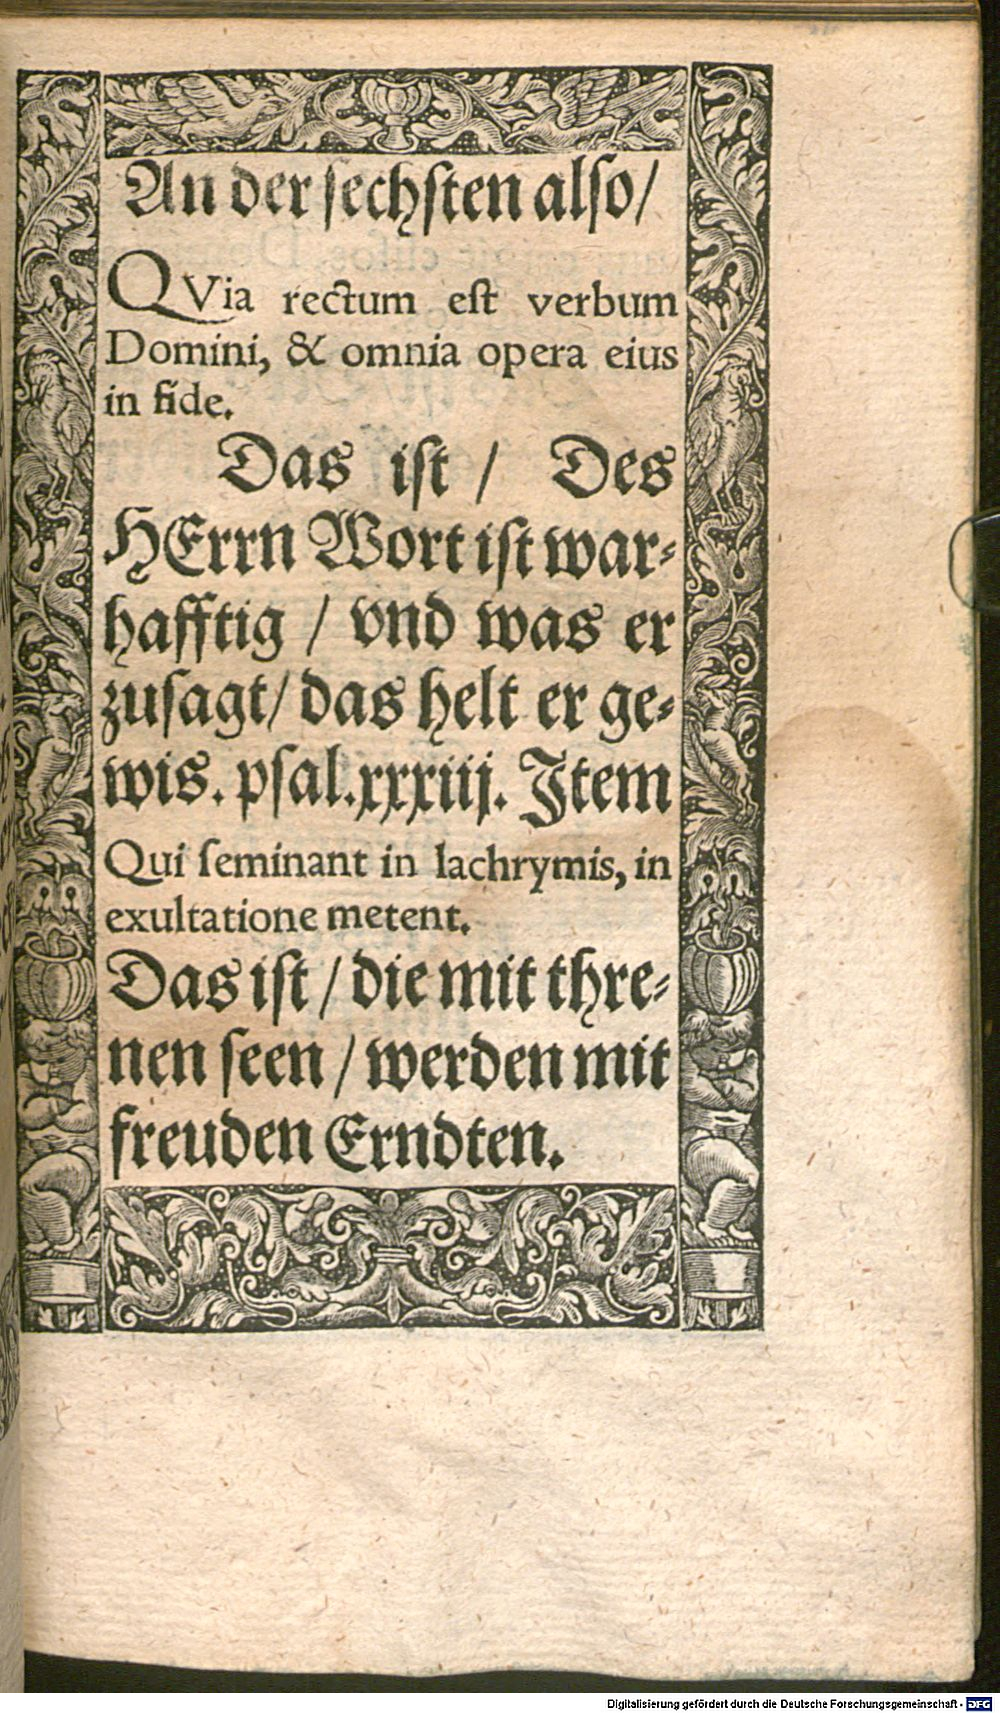 An der sechsten also/
QVia rectum est verbum
Domini, & omnia opera eius
in fide.
Das ist / Des
HErrn Wort ist war⸗
hafftig / vnd was er
zusagt/ das helt er ge⸗
wis. psal.xxxiij. Item
Qui seminant in lachrymis, in
exultatione metent.
Das ist / die mit thre⸗
nen seen / werden mit
freuden Erndten.
Digitalisierung gefördert durch die Deutsche Forschungsgemeinschaft - DFG